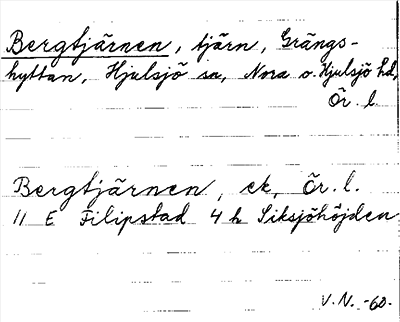 Bergtjärnen, tjärn, Grängs-
hyttan, Hjulsjö sn, Nora o. Hjulsjö hd,
Ör. l.
Bergtjärnen, ek, Ör. l.
11 E Filipstad 4 h Siksjöhöjden
V.N. -60-